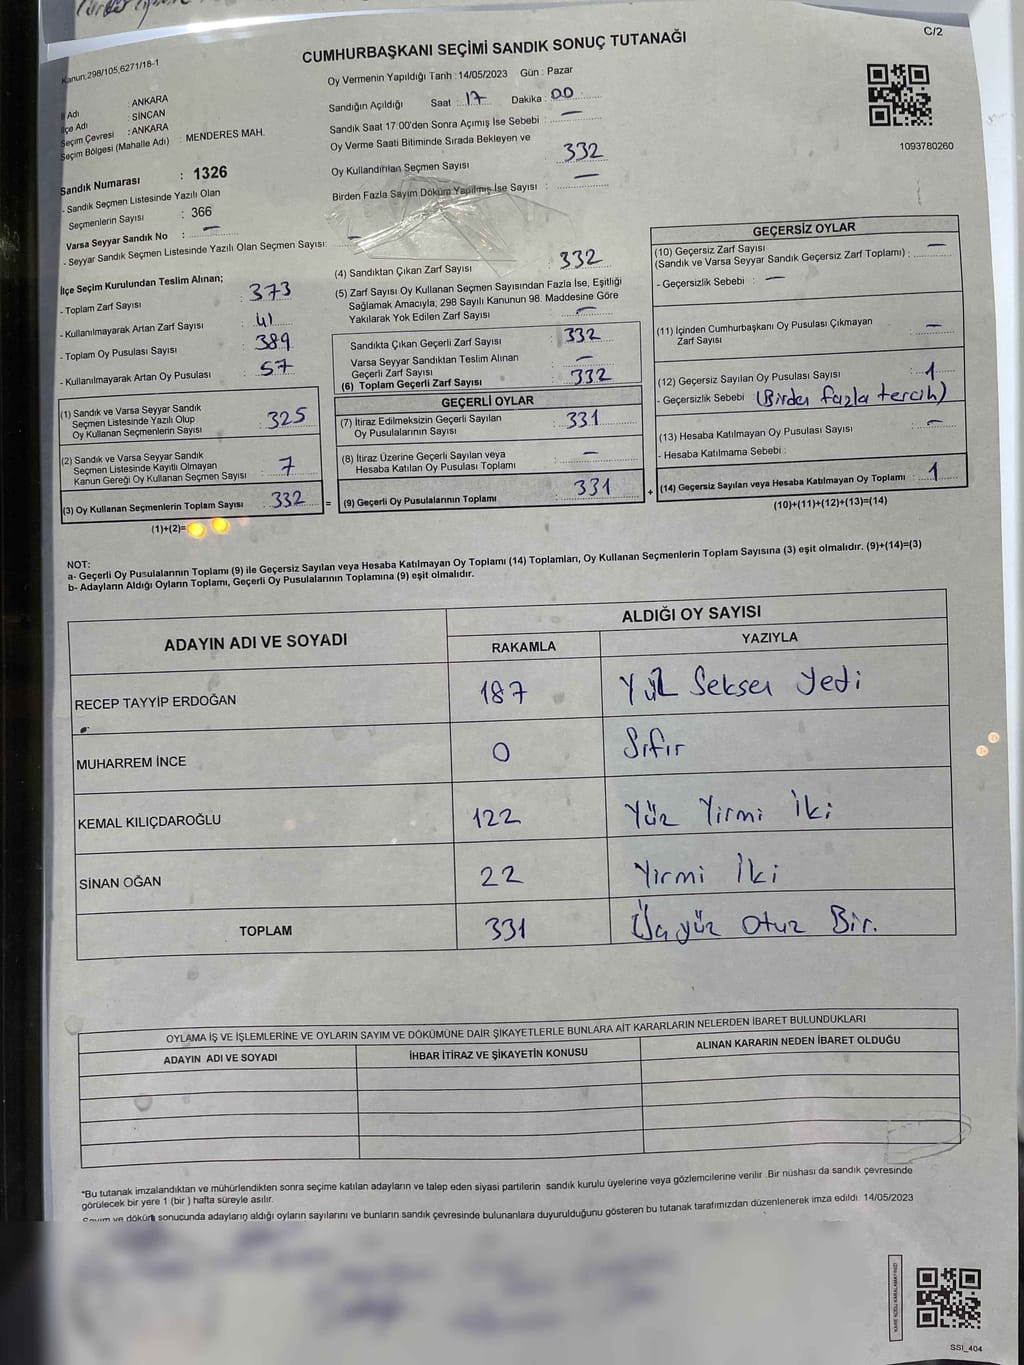 C/2
CUMHURBAŞKANI SEÇİMİ SANDIK SONUÇ TUTANAĞI
Kanun,298/105,6271/18-1
Oy Vermenin Yapıldığı Tarih :14/05/2023 Gün : Pazar
İl Adı : ANKARA
İlçe Adı : SİNCAN
Seçim Çevresi : ANKARA
Seçim Bölgesi (Mahalle Adı) : MENDERES MAH.
Sandığın Açıldığı Saat : 17 Dakika : 00
Sandık Saat 17:00'den Sonra Açımış İse Sebebi : —
Oy Verme Saati Bitiminde Sırada Bekleyen ve
Oy Kullandırılan Seçmen Sayısı : 332
Birden Fazla Sayım Döküm Yapılmış İse Sayısı : —
1093780260
Sandık Numarası : 1326
- Sandık Seçmen Listesinde Yazılı Olan
Seçmenlerin Sayısı : 366
Varsa Seyyar Sandık No : —
- Seyyar Sandık Seçmen Listesinde Yazılı Olan Seçmen Sayısı: —
İlçe Seçim Kurulundan Teslim Alınan;
- Toplam Zarf Sayısı : 373
- Kullanılmayarak Artan Zarf Sayısı : 41
- Toplam Oy Pusulası Sayısı : 389
- Kullanılmayarak Artan Oy Pusulası : 57
(1) Sandık ve Varsa Seyyar Sandık
Seçmen Listesinde Yazılı Olup
Oy Kullanan Seçmenlerin Sayısı : 325
(2) Sandık ve Varsa Seyyar Sandık
Seçmen Listesinde Kayıtlı Olmayan
Kanun Gereği Oy Kullanan Seçmen Sayısı : 7
(3) Oy Kullanan Seçmenlerin Toplam Sayısı : 332 =
(1)+(2)=
(4) Sandıktan Çıkan Zarf Sayısı : 332
(5) Zarf Sayısı Oy Kullanan Seçmen Sayısından Fazla İse, Eşitliği
Sağlamak Amacıyla, 298 Sayılı Kanunun 98. Maddesine Göre
Yakılarak Yok Edilen Zarf Sayısı : —
Sandıkta Çıkan Geçerli Zarf Sayısı : 332
Varsa Seyyar Sandıktan Teslim Alınan
Geçerli Zarf Sayısı : —
(6) Toplam Geçerli Zarf Sayısı : 332
GEÇERLİ OYLAR
(7) İtiraz Edilmeksizin Geçerli Sayılan
Oy Pusulalarının Sayısı : 331
(8) İtiraz Üzerine Geçerli Sayılan veya
Hesaba Katılan Oy Pusulası Toplamı : —
(9) Geçerli Oy Pusulalarının Toplamı : 331 +
GEÇERSİZ OYLAR
(10) Geçersiz Zarf Sayısı
(Sandık ve Varsa Seyyar Sandık Geçersiz Zarf Toplamı) : —
- Geçersizlik Sebebi : —
(11) İçinden Cumhurbaşkanı Oy Pusulası Çıkmayan
Zarf Sayısı : —
(12) Geçersiz Sayılan Oy Pusulası Sayısı : 1
- Geçersizlik Sebebi : (Birden fazla tercih)
(13) Hesaba Katılmayan Oy Pusulası Sayısı : —
- Hesaba Katılmama Sebebi :
(14) Geçersiz Sayılan veya Hesaba Katılmayan Oy Toplamı : 1
(10)+(11)+(12)+(13)=(14)
NOT:
a- Geçerli Oy Pusulalarının Toplamı (9) ile Geçersiz Sayılan veya Hesaba Katılmayan Oy Toplamı (14) Toplamları, Oy Kullanan Seçmenlerin Toplam Sayısına (3) eşit olmalıdır. (9)+(14)=(3)
b- Adayların Aldığı Oyların Toplamı, Geçerli Oy Pusulalarının Toplamına (9) eşit olmalıdır.
ADAYIN ADI VE SOYADI ALDIĞI OY SAYISI
RAKAMLA YAZIYLA
RECEP TAYYİP ERDOĞAN 187 Yüz Seksen Yedi
MUHARREM İNCE 0 Sıfır
KEMAL KILIÇDAROĞLU 122 Yüz Yirmi İki
SİNAN OĞAN 22 Yirmi İki
TOPLAM 331 Üçyüz Otuz Bir.
OYLAMA İŞ VE İŞLEMLERİNE VE OYLARIN SAYIM VE DÖKÜMÜNE DAİR ŞİKAYETLERLE BUNLARA AİT KARARLARIN NELERDEN İBARET BULUNDUKLARI
ADAYIN ADI VE SOYADI İHBAR İTİRAZ VE ŞİKAYETİN KONUSU ALINAN KARARIN NEDEN İBARET OLDUĞU
*Bu tutanak imzalandıktan ve mühürlendikten sonra seçime katılan adayların ve talep eden siyasi partilerin sandık kurulu üyelerine veya gözlemcilerine verilir .Bir nüshası da sandık çevresinde
görülecek bir yere 1 (bir ) hafta süreyle asılır.
Sayım ve döküm sonucunda adayların aldığı oyların sayılarını ve bunların sandık çevresinde bulunanlara duyurulduğunu gösteren bu tutanak tarafımızdan düzenlenerek imza edildi. 14/05/2023
SSI_404